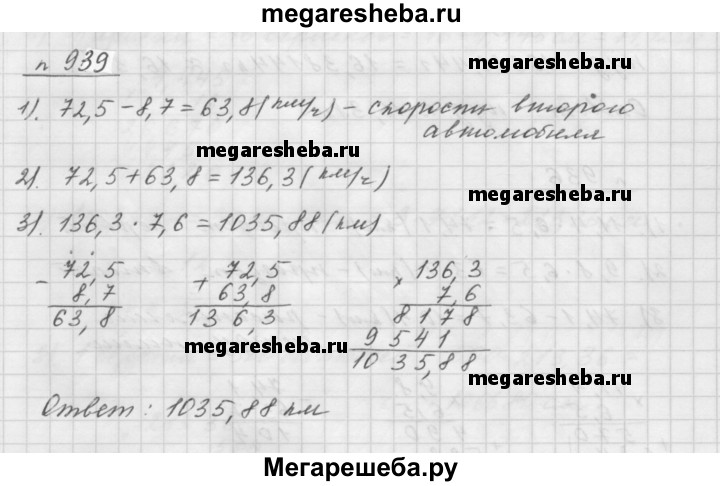 megaresheba.ru
п 939
megaresheba.ru
1). 72,5 - 8,7 = 63,8 (км/ч) - скорость второго
автомобиля
megaresheba.ru
2). 72,5 + 63,8 = 136,3 (км/ч)
3). 136,3 · 7,6 = 1035,88 (км)
megaresheba.ru
- 72,5
8,7
63,8
+ 72,5
63,8
136,3
× 136,3
7,6
8178
9541
1035,88
megaresheba.ru
megaresheba.ru
Ответ: 1035,88 км
Мегарешеба.ру